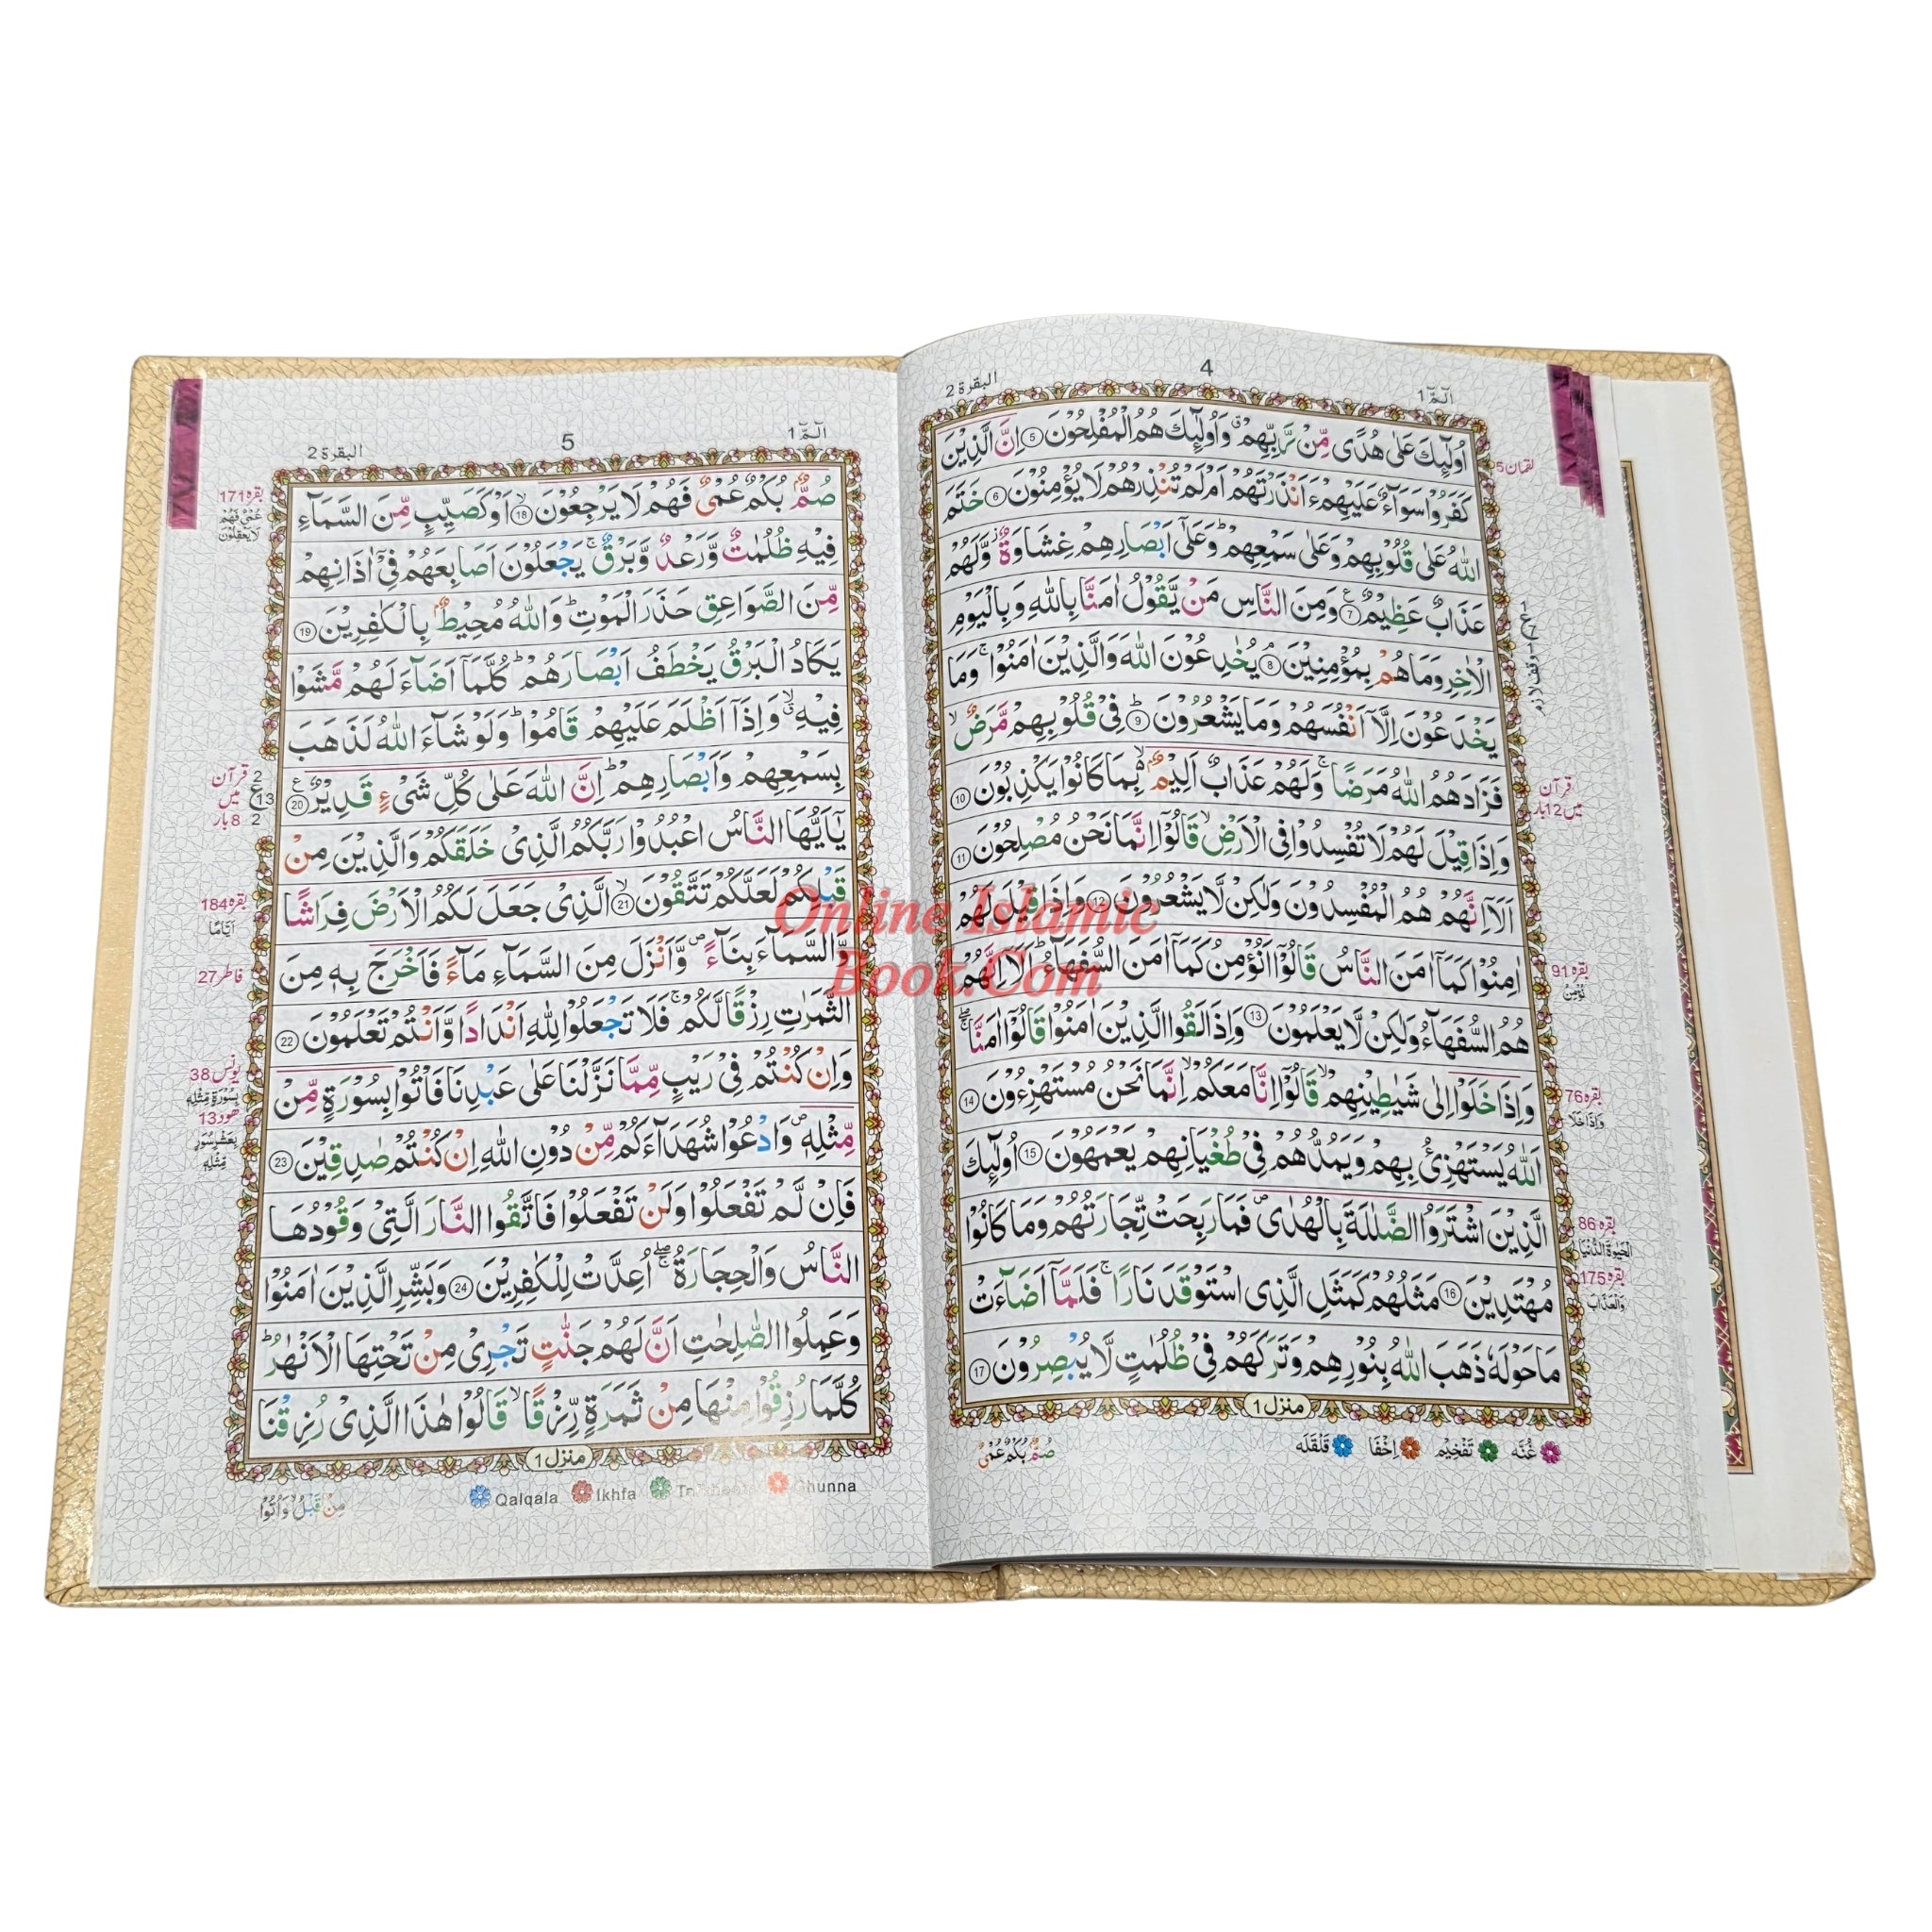 البقرة 2
4
الٓمّٓ 1
اُولٰٓئِكَ عَلٰى هُدًى مِّنْ رَّبِّهِمْ ۙ وَاُولٰٓئِكَ هُمُ الْمُفْلِحُوْنَ 5 اِنَّ الَّذِيْنَ
كَفَرُوْا سَوَآءٌ عَلَيْهِمْ ءَاَنْذَرْتَهُمْ اَمْ لَمْ تُنْذِرْهُمْ لَا يُؤْمِنُوْنَ 6 خَتَمَ
اللّٰهُ عَلٰى قُلُوْبِهِمْ وَعَلٰى سَمْعِهِمْ ؕ وَعَلٰٓى اَبْصَارِهِمْ غِشَاوَةٌ ؗ وَّلَهُمْ
عَذَابٌ عَظِيْمٌ 7 وَمِنَ النَّاسِ مَنْ يَّقُوْلُ اٰمَنَّا بِاللّٰهِ وَبِالْيَوْمِ
الْاٰخِرِ وَمَا هُمْ بِمُؤْمِنِيْنَ 8 يُخٰدِعُوْنَ اللّٰهَ وَالَّذِيْنَ اٰمَنُوْا ۚ وَمَا
يَخْدَعُوْنَ اِلَّآ اَنْفُسَهُمْ وَمَا يَشْعُرُوْنَ 9 فِيْ قُلُوْبِهِمْ مَّرَضٌ ۙ
فَزَادَهُمُ اللّٰهُ مَرَضًا ۚ وَلَهُمْ عَذَابٌ اَلِيْمٌۢ ۙ بِمَا كَانُوْا يَكْذِبُوْنَ 10
وَاِذَا قِيْلَ لَهُمْ لَا تُفْسِدُوْا فِى الْاَرْضِ ۙ قَالُوْٓا اِنَّمَا نَحْنُ مُصْلِحُوْنَ 11
اَلَآ اِنَّهُمْ هُمُ الْمُفْسِدُوْنَ وَلٰكِنْ لَّا يَشْعُرُوْنَ 12 وَاِذَا قِيْلَ لَهُمْ
اٰمِنُوْا كَمَآ اٰمَنَ النَّاسُ قَالُوْٓا اَنُؤْمِنُ كَمَآ اٰمَنَ السُّفَهَآءُ ؕ اَلَآ اِنَّهُمْ
هُمُ السُّفَهَآءُ وَلٰكِنْ لَّا يَعْلَمُوْنَ 13 وَاِذَا لَقُوا الَّذِيْنَ اٰمَنُوْا قَالُوْٓا اٰمَنَّا ۖۚ
وَاِذَا خَلَوْا اِلٰى شَيٰطِيْنِهِمْ ۙ قَالُوْٓا اِنَّا مَعَكُمْ ۙ اِنَّمَا نَحْنُ مُسْتَهْزِءُوْنَ 14
اَللّٰهُ يَسْتَهْزِئُ بِهِمْ وَيَمُدُّهُمْ فِيْ طُغْيَانِهِمْ يَعْمَهُوْنَ 15 اُولٰٓئِكَ
الَّذِيْنَ اشْتَرَوُا الضَّلٰلَةَ بِالْهُدٰى ۪ فَمَا رَبِحَتْ تِّجَارَتُهُمْ وَمَا كَانُوْا
مُهْتَدِيْنَ 16 مَثَلُهُمْ كَمَثَلِ الَّذِى اسْتَوْقَدَ نَارًا ۚ فَلَمَّآ اَضَآءَتْ
مَا حَوْلَهٗ ذَهَبَ اللّٰهُ بِنُوْرِهِمْ وَتَرَكَهُمْ فِيْ ظُلُمٰتٍ لَّا يُبْصِرُوْنَ 17
منزل 1
غُنَّه تَفْخِيْم اِخْفَا قَلْقَلَه
صُمٌّۢ بُكْمٌ عُمْيٌ
لقمان 5
وقف لازم
قرآن
میں 12 بار
بقره 91
نُؤْمِنُ
بقره 76
وَاِذَا خَلَا
بقره 86
الْحَيٰوةَ الدُّنْيَا
بقره 175
وَالْعَذَابَ
البقرة 2
5
الٓمّٓ 1
صُمٌّۢ بُكْمٌ عُمْيٌ فَهُمْ لَا يَرْجِعُوْنَ 18 اَوْ كَصَيِّبٍ مِّنَ السَّمَآءِ
فِيْهِ ظُلُمٰتٌ وَّرَعْدٌ وَّبَرْقٌ ۚ يَجْعَلُوْنَ اَصَابِعَهُمْ فِيْٓ اٰذَانِهِمْ
مِّنَ الصَّوَاعِقِ حَذَرَ الْمَوْتِ ؕ وَاللّٰهُ مُحِيْطٌۢ بِالْكٰفِرِيْنَ 19
يَكَادُ الْبَرْقُ يَخْطَفُ اَبْصَارَهُمْ ؕ كُلَّمَآ اَضَآءَ لَهُمْ مَّشَوْا
فِيْهِ ۙ وَاِذَآ اَظْلَمَ عَلَيْهِمْ قَامُوْا ؕ وَلَوْ شَآءَ اللّٰهُ لَذَهَبَ
بِسَمْعِهِمْ وَاَبْصَارِهِمْ ؕ اِنَّ اللّٰهَ عَلٰى كُلِّ شَيْءٍ قَدِيْرٌ 20
يٰٓاَيُّهَا النَّاسُ اعْبُدُوْا رَبَّكُمُ الَّذِيْ خَلَقَكُمْ وَالَّذِيْنَ مِنْ
قَبْلِكُمْ لَعَلَّكُمْ تَتَّقُوْنَ ۙ 21 الَّذِيْ جَعَلَ لَكُمُ الْاَرْضَ فِرَاشًا
وَّالسَّمَآءَ بِنَآءً ۪ وَّاَنْزَلَ مِنَ السَّمَآءِ مَآءً فَاَخْرَجَ بِهٖ مِنَ
الثَّمَرٰتِ رِزْقًا لَّكُمْ ۚ فَلَا تَجْعَلُوْا لِلّٰهِ اَنْدَادًا وَّاَنْتُمْ تَعْلَمُوْنَ 22
وَاِنْ كُنْتُمْ فِيْ رَيْبٍ مِّمَّا نَزَّلْنَا عَلٰى عَبْدِنَا فَاْتُوْا بِسُوْرَةٍ مِّنْ
مِّثْلِهٖ ۪ وَادْعُوْا شُهَدَآءَكُمْ مِّنْ دُوْنِ اللّٰهِ اِنْ كُنْتُمْ صٰدِقِيْنَ 23
فَاِنْ لَّمْ تَفْعَلُوْا وَلَنْ تَفْعَلُوْا فَاتَّقُوا النَّارَ الَّتِيْ وَقُوْدُهَا
النَّاسُ وَالْحِجَارَةُ ۖۚ اُعِدَّتْ لِلْكٰفِرِيْنَ 24 وَبَشِّرِ الَّذِيْنَ اٰمَنُوْا
وَعَمِلُوا الصّٰلِحٰتِ اَنَّ لَهُمْ جَنّٰتٍ تَجْرِيْ مِنْ تَحْتِهَا الْاَنْهٰرُ ؕ
كُلَّمَا رُزِقُوْا مِنْهَا مِنْ ثَمَرَةٍ رِّزْقًا ۙ قَالُوْا هٰذَا الَّذِيْ رُزِقْنَا
منزل 1
Qalqala Ikhfa Ghunna
مِنْ قَبْلُ ۙ وَاُتُوْا
بقره 171
عُمْيٌ فَهُمْ
لَا يَعْقِلُوْنَ
2 قرآن
ع 13 میں
2 8 بار
بقره 184
اَيَّامًا
فاطر 27
یونس 38
بِسُوْرَةٍ مِّثْلِهٖ
هود 13
بِعَشْرِ سُوَرٍ
مِّثْلِهٖ
Online Islamic
Book.Com